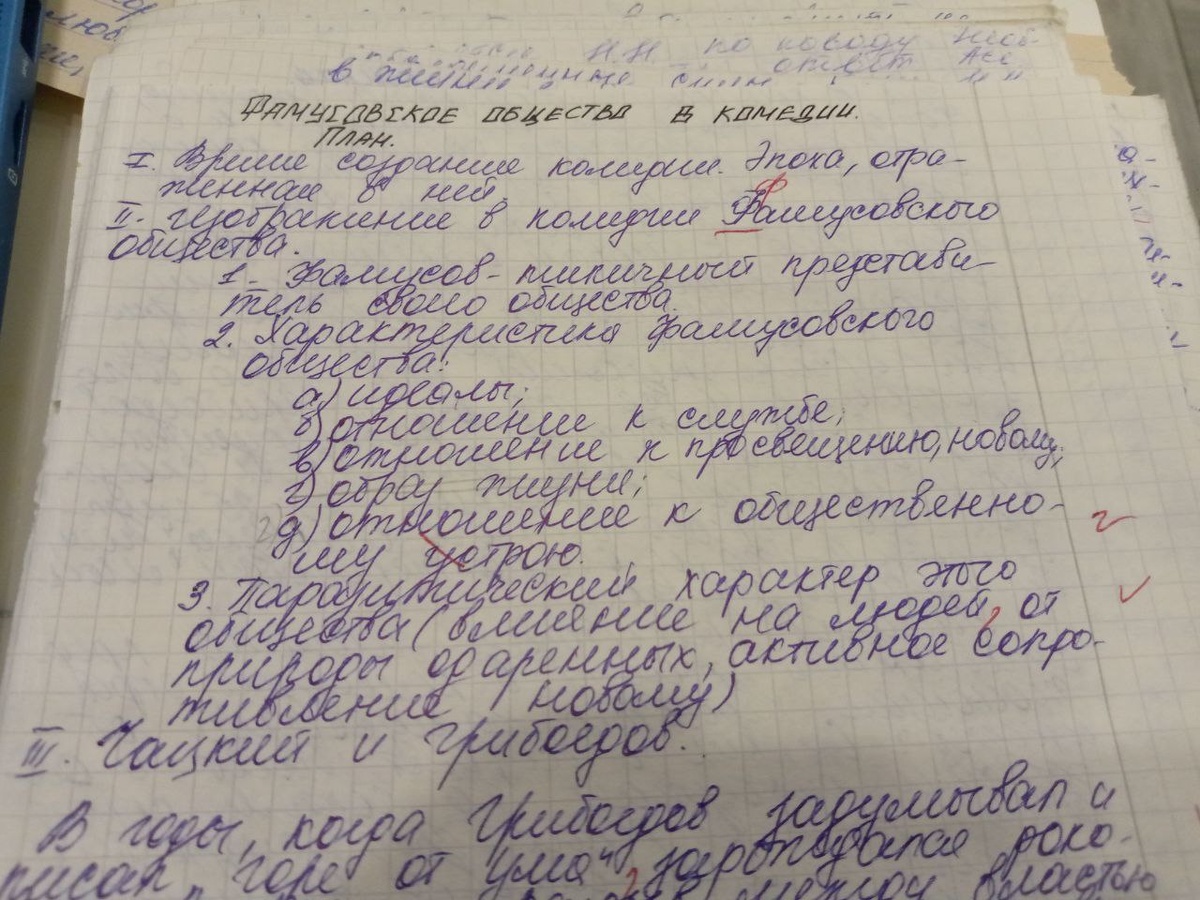 Н.Н по поводу
в жизни
Фамусовское общество в комедии.
План.
I. Время создания комедии. Эпоха, отра-
женная в ней.
II. Изображение в комедии Фамусовского
ф
общества.
1- Фамусов- типичный представи-
тель своего общества.
2. Характеристика Фамусовского
общества:
а) идеалы;
б) отношение к службе;
в) отношение к просвещению, новому;
г) образ жизни;
д) отношение к общественно-
му устрою.
3. Паразитический характер этого
общества (влияние на людей, от
природы одаренных, активное сопро-
тивление новому)
III. Чацкий и Грибоедов.
В годы, когда Грибоедов задумывал и
писал „Горе от ума" зарождался роко-
между властью